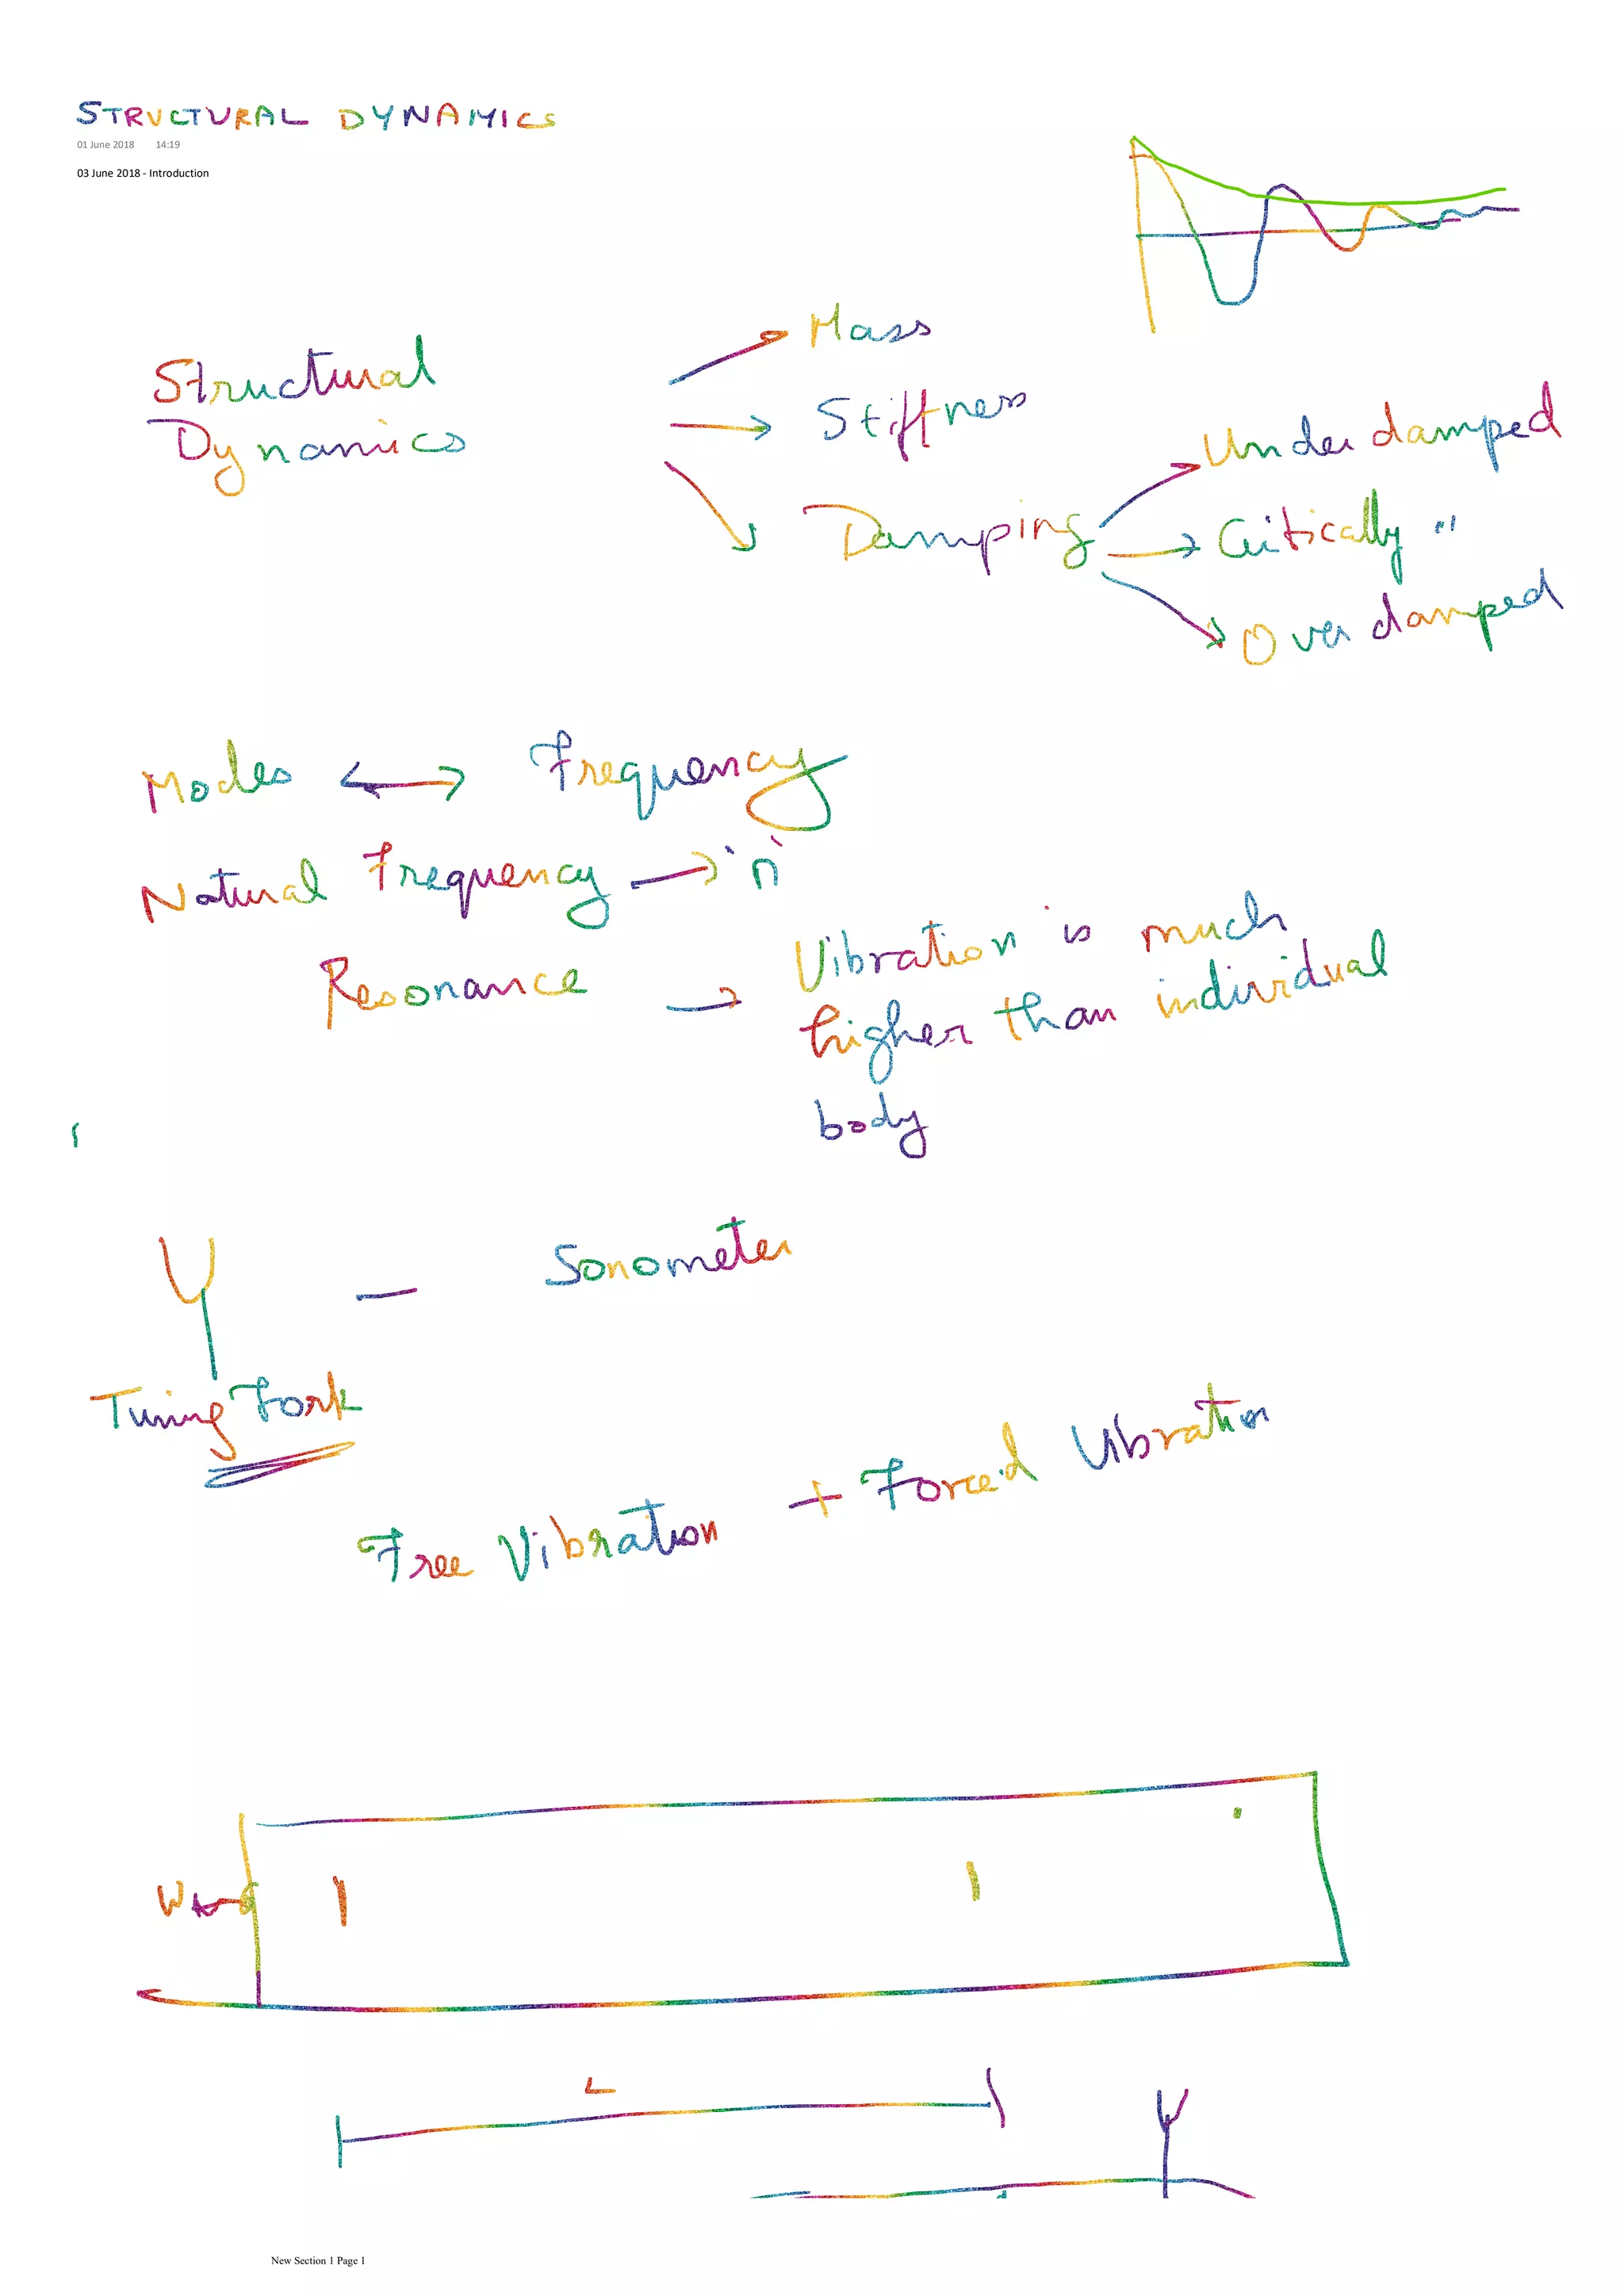 STRUCTURAL DYNAMICS
01 June 2018 14:19
03 June 2018 - Introduction
Structural
Dynamics
Mass
Stiffness
Damping
Under damped
Critically "
Over damped
Modes ↔ Frequency
Natural Frequency → 'n'
Resonance → Vibration is much
higher than individual
body
- Sonometer
Tuning Fork
Free Vibration + Forced Vibration
L
New Section 1 Page 1